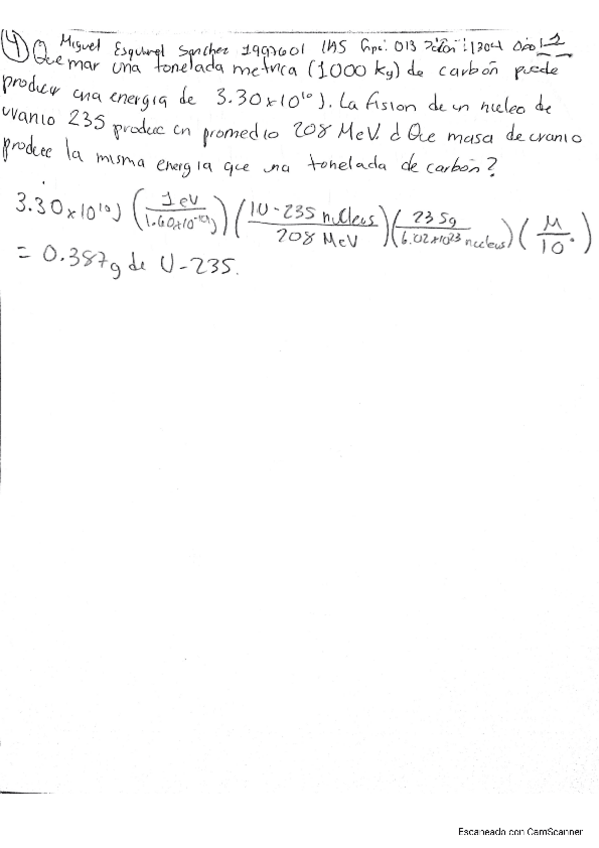 4) Miguel Esquivel Sanchez 1992601 IAS Gpo: 013
Quemar una tonelada metrica (1000 kg) de carbón puede
producir una energia de 3.30x10¹⁰ J. La fision de un nucleo de
uranio 235 produce en promedio 208 MeV. ¿ Que masa de uranio
produce la misma energia que una tonelada de carbón?
3.30x10¹⁰ J (1 eV / 1.60x10⁻¹⁹ J) (1 U-235 nucleus / 208 MeV) (235g / 6.02x10²³ nucleus) (M / 10⁶)
= 0.387g de U-235.
Escaneado con CamScanner